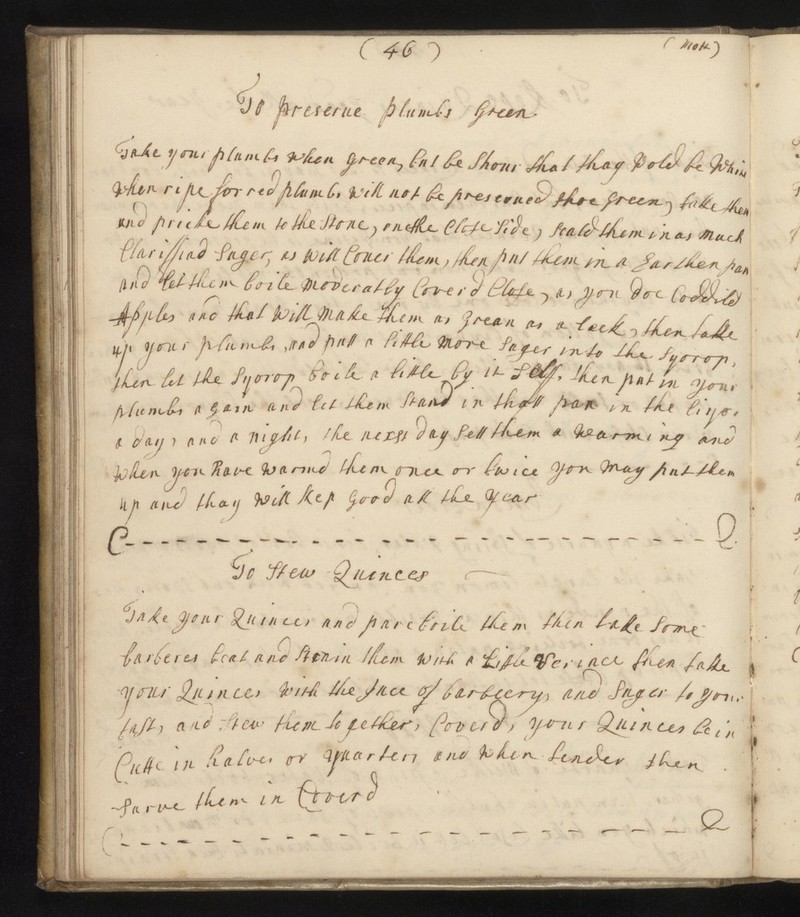 ( 46 )
To preserue plumbs Green
Take your plumbs when green, but be Shour that thay Would be Whit
when ripe for red plumbs will not be preserued thoe green, take them
and pricke them to the Stone, on the Close Side, scald them in as much
Clariffiad Suger, as will Couer them, then put them in a Earthen pan
and let them boile moderatly Couerd Close, as you doe Coddild
Apples and that will make them as grean as a leek, then take
up your plumbs, and putt a little more Suger into the Syorop,
then let the Syorop boile a little by it Self, then put in your
plumbs again and let them Stand in that pan in the
a day, and a night, the next day Sett them a warming and
when you have warmd them once or twice you may put them
up and thay will kep good all the year
To Stew Quinces
Take your Quinces and pareboile them then take Some
barberes beat and Strain them with a Little Veriace then take
your Quinces with the Juce of barbeery, and Suger to your
tast, and Stew them together, Couerd, your Quinces bein
Cutte in halves or quarters and when tender then
Sarve them in Couerd